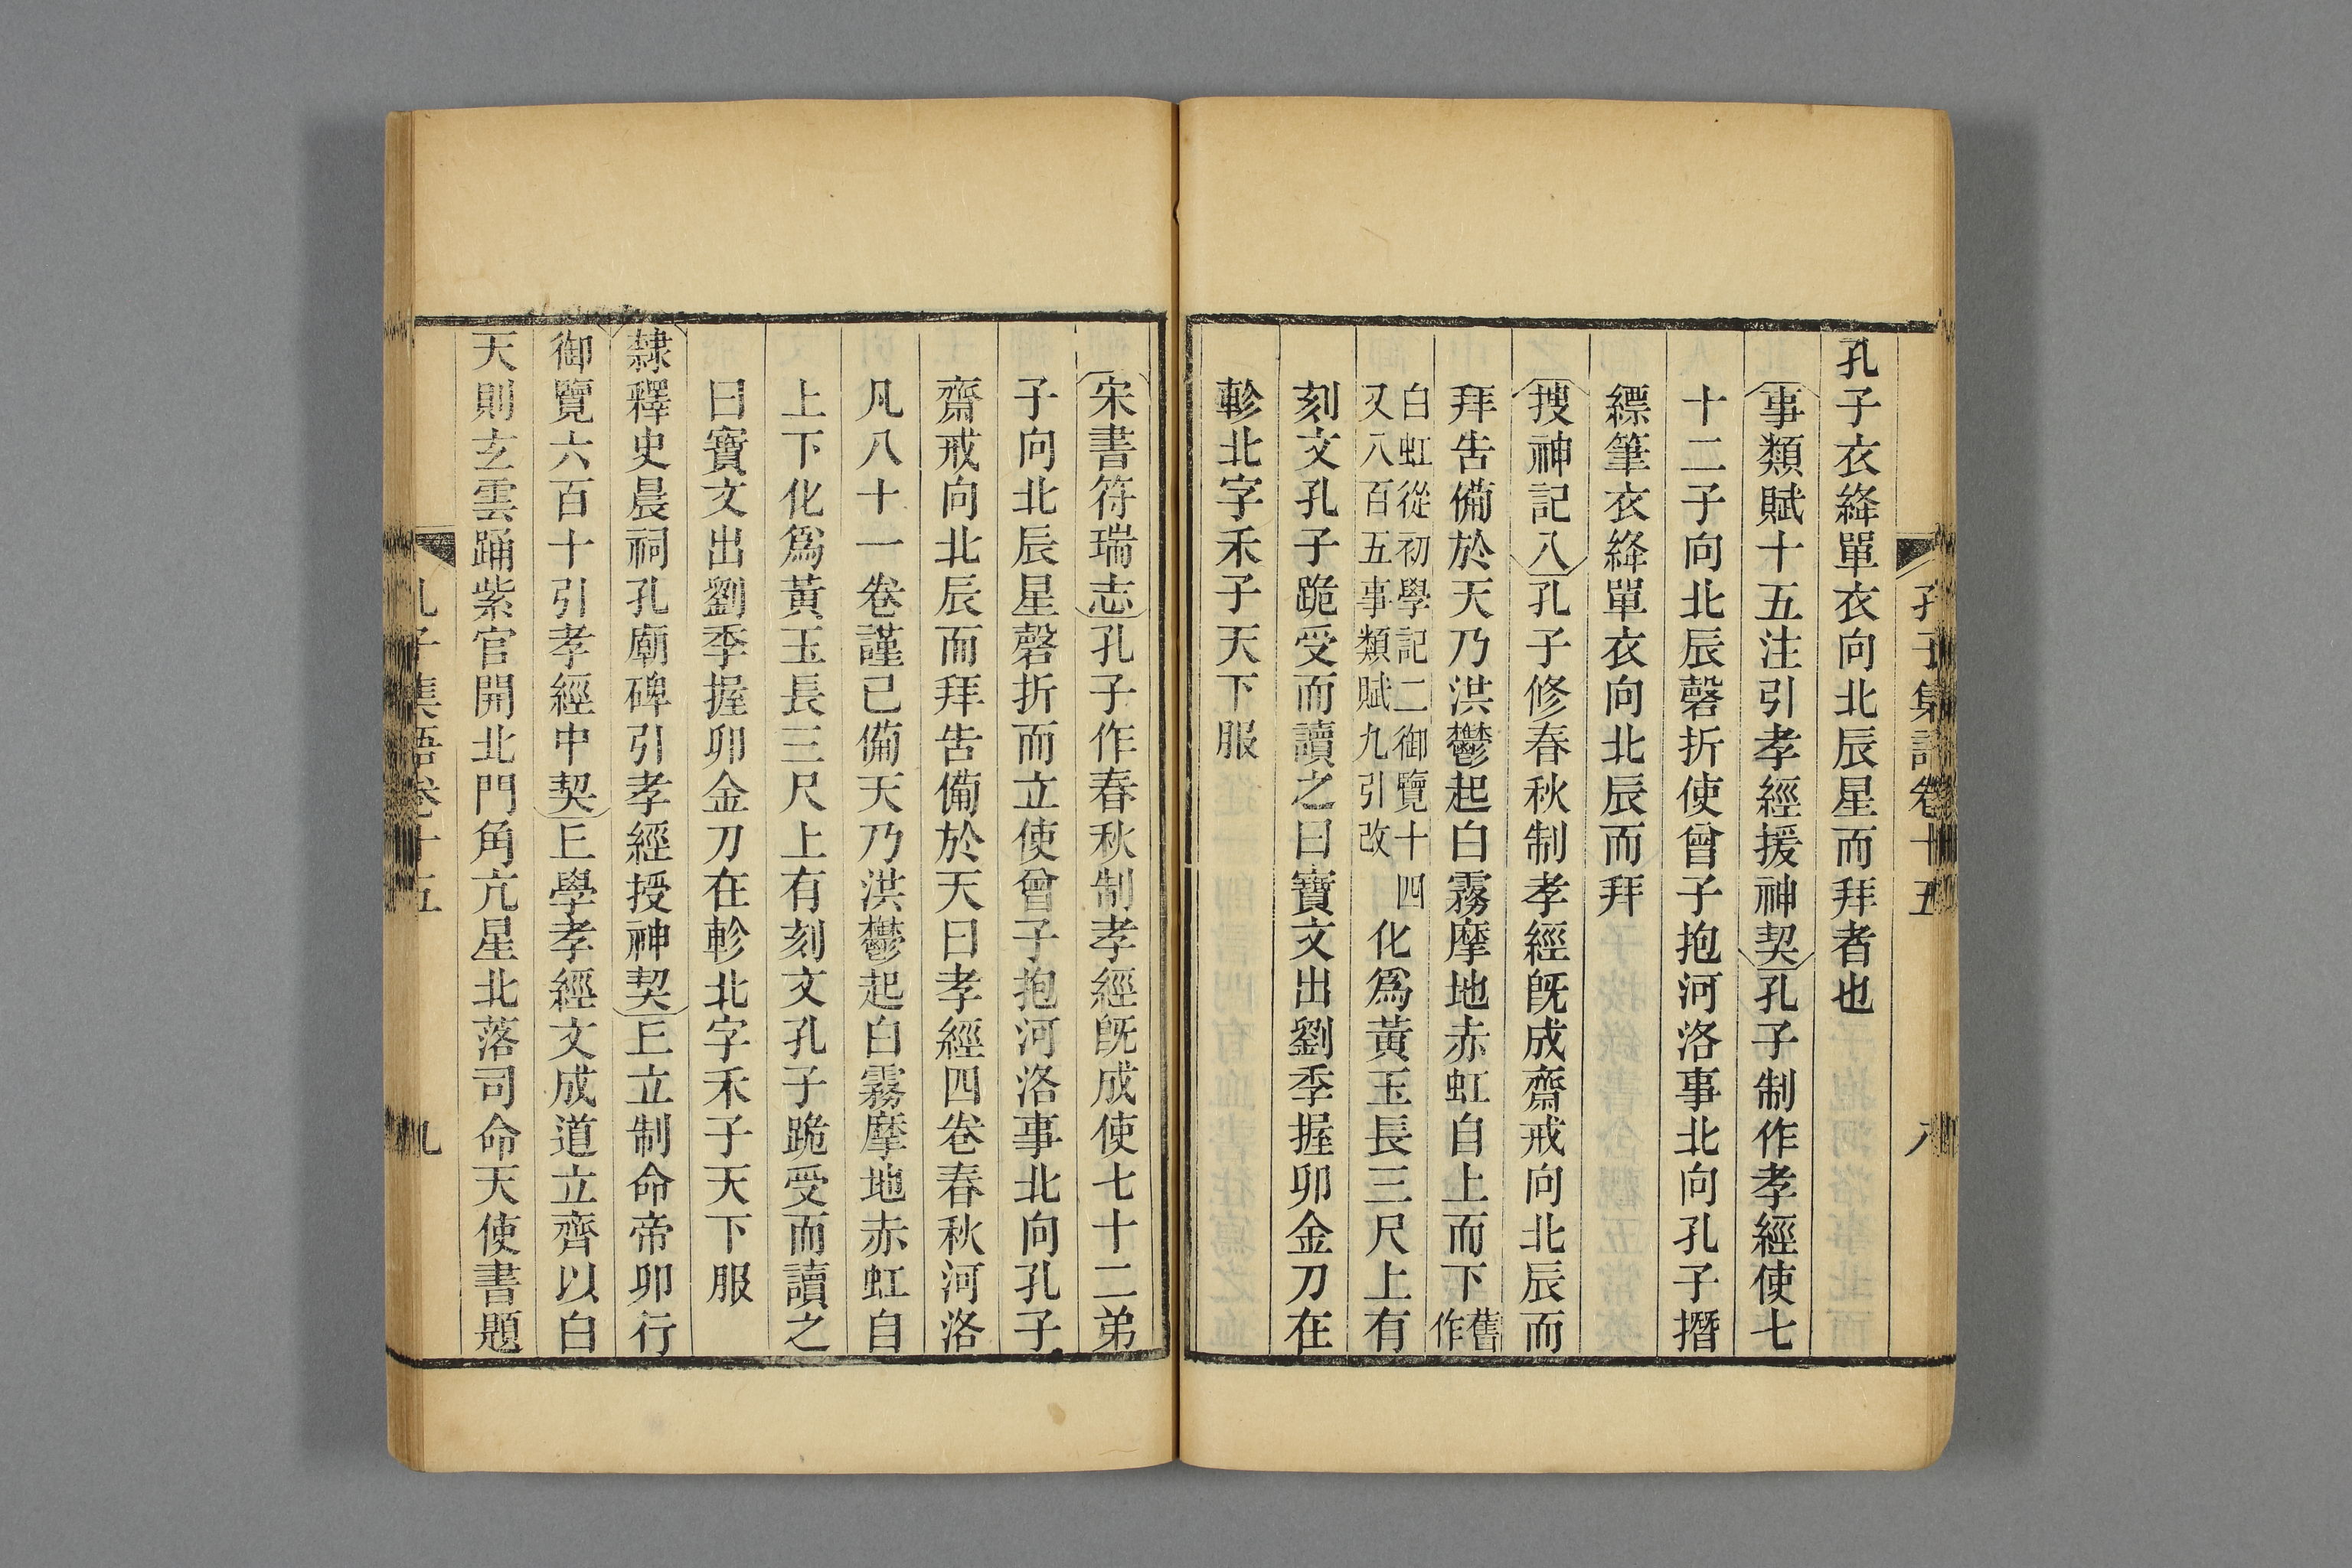 孔子集語卷十五
八
孔子衣絳單衣向北辰星而拜者也
事類賦十五注引孝經援神契孔子制作孝經使七
十二子向北辰磬折使曾子抱河洛事北向孔子搢
縹筆衣絳單衣向北辰而拜
搜神記八孔子修春秋制孝經既成齋戒向北辰而
拜告備於天乃洪鬱起白霧摩地赤虹自上而下舊作
白虹從初學記二御覽十四
又八百五事類賦九引改
化爲黃玉長三尺上有
刻文孔子跪受而讀之曰寶文出劉季握卯金刀在
軫北字禾子天下服
宋書符瑞志孔子作春秋制孝經既成使七十二弟
子向北辰星磬折而立使曾子抱河洛事北向孔子
齋戒向北辰而拜告備於天曰孝經四卷春秋河洛
凡八十一卷謹已備天乃洪鬱起白霧摩地赤虹自
上下化爲黃玉長三尺上有刻文孔子跪受而讀之
曰寶文出劉季握卯金刀在軫北字禾子天下服
隸釋史晨祠孔廟碑引孝經授神契𠀉立制命帝卯行
御覽六百十引孝經中契𠀉學孝經文成道立齊以白
天則玄雲踊紫官開北門角亢星北落司命天使書題
孔子集語卷十五
九